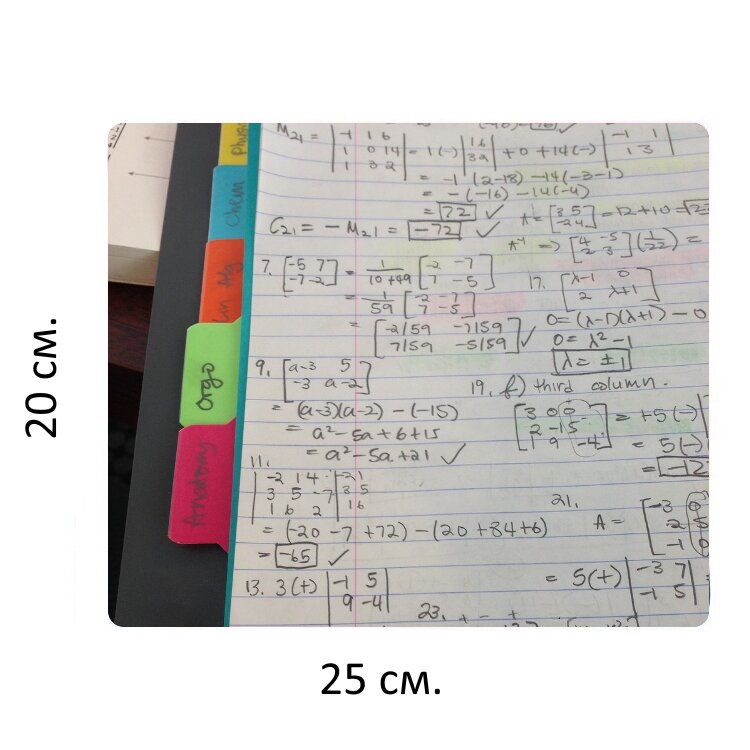 20 см.
25 см.
Physi
Chem
un Alg
Orgo
Anatomy
M21 = | -1 1 6 | = 1(-) | 1 6 | + 0 + 14(-) | -1 1 |
| 1 0 14 | | 3 2 | | 1 3 |
| 1 3 2 |
= -1 (2-18) -14(-3-1)
= -(-16) -14(-4)
= 72 ✓
C21 = -M21 = -72 ✓
A = [ 3 5 ] = 12+10 = 22
[ -2 4 ]
A⁻¹ => [ 4 -5 ] (1/22) =
[ 2 3 ]
7. [ -5 7 ] = 1/(10+49) [ -2 -7 ]
[ -7 -2 ] [ 7 -5 ]
= 1/59 [ -2 -7 ]
[ 7 -5 ]
= [ -2/59 -7/59 ] ✓
[ 7/59 -5/59 ]
17. [ λ-1 0 ]
[ 2 λ+1 ]
0 = (λ-1)(λ+1) - 0
0 = λ² - 1
λ = ±1
9. [ a-3 5 ]
[ -3 a-2 ]
= (a-3)(a-2) - (-15)
= a² - 5a + 6 + 15
= a² - 5a + 21 ✓
19. f) third column.
[ 3 0 0 ] = +5(-)
[ 2 -1 5 ] = 5(-)
[ 1 9 -4 ] = -12
11.
| -2 1 4 | -2 1
| 3 5 -7 | 3 5
| 1 6 2 | 1 6
= (-20 -7 +72) - (20+84+6)
= -65 ✓
21.
A = [ -3 0
2 5
-1 0
13. 3(+) | -1 5 |
| 9 -4 |
= 5(+) | -3 7 | =
| -1 5 |
23. + - +